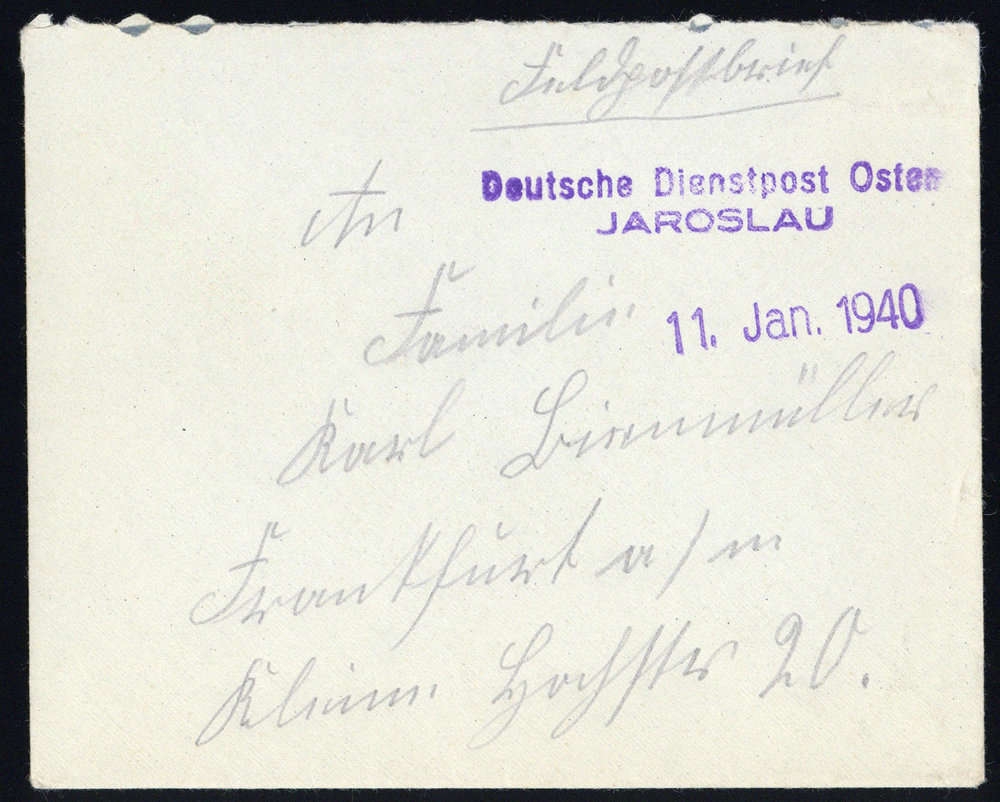 Feldpostbrief
Deutsche Dienstpost Osten
JAROSLAU
An
11. Jan. 1940
Familie
Karl
Frankfurt a/m
Kleine Hochstr 20.